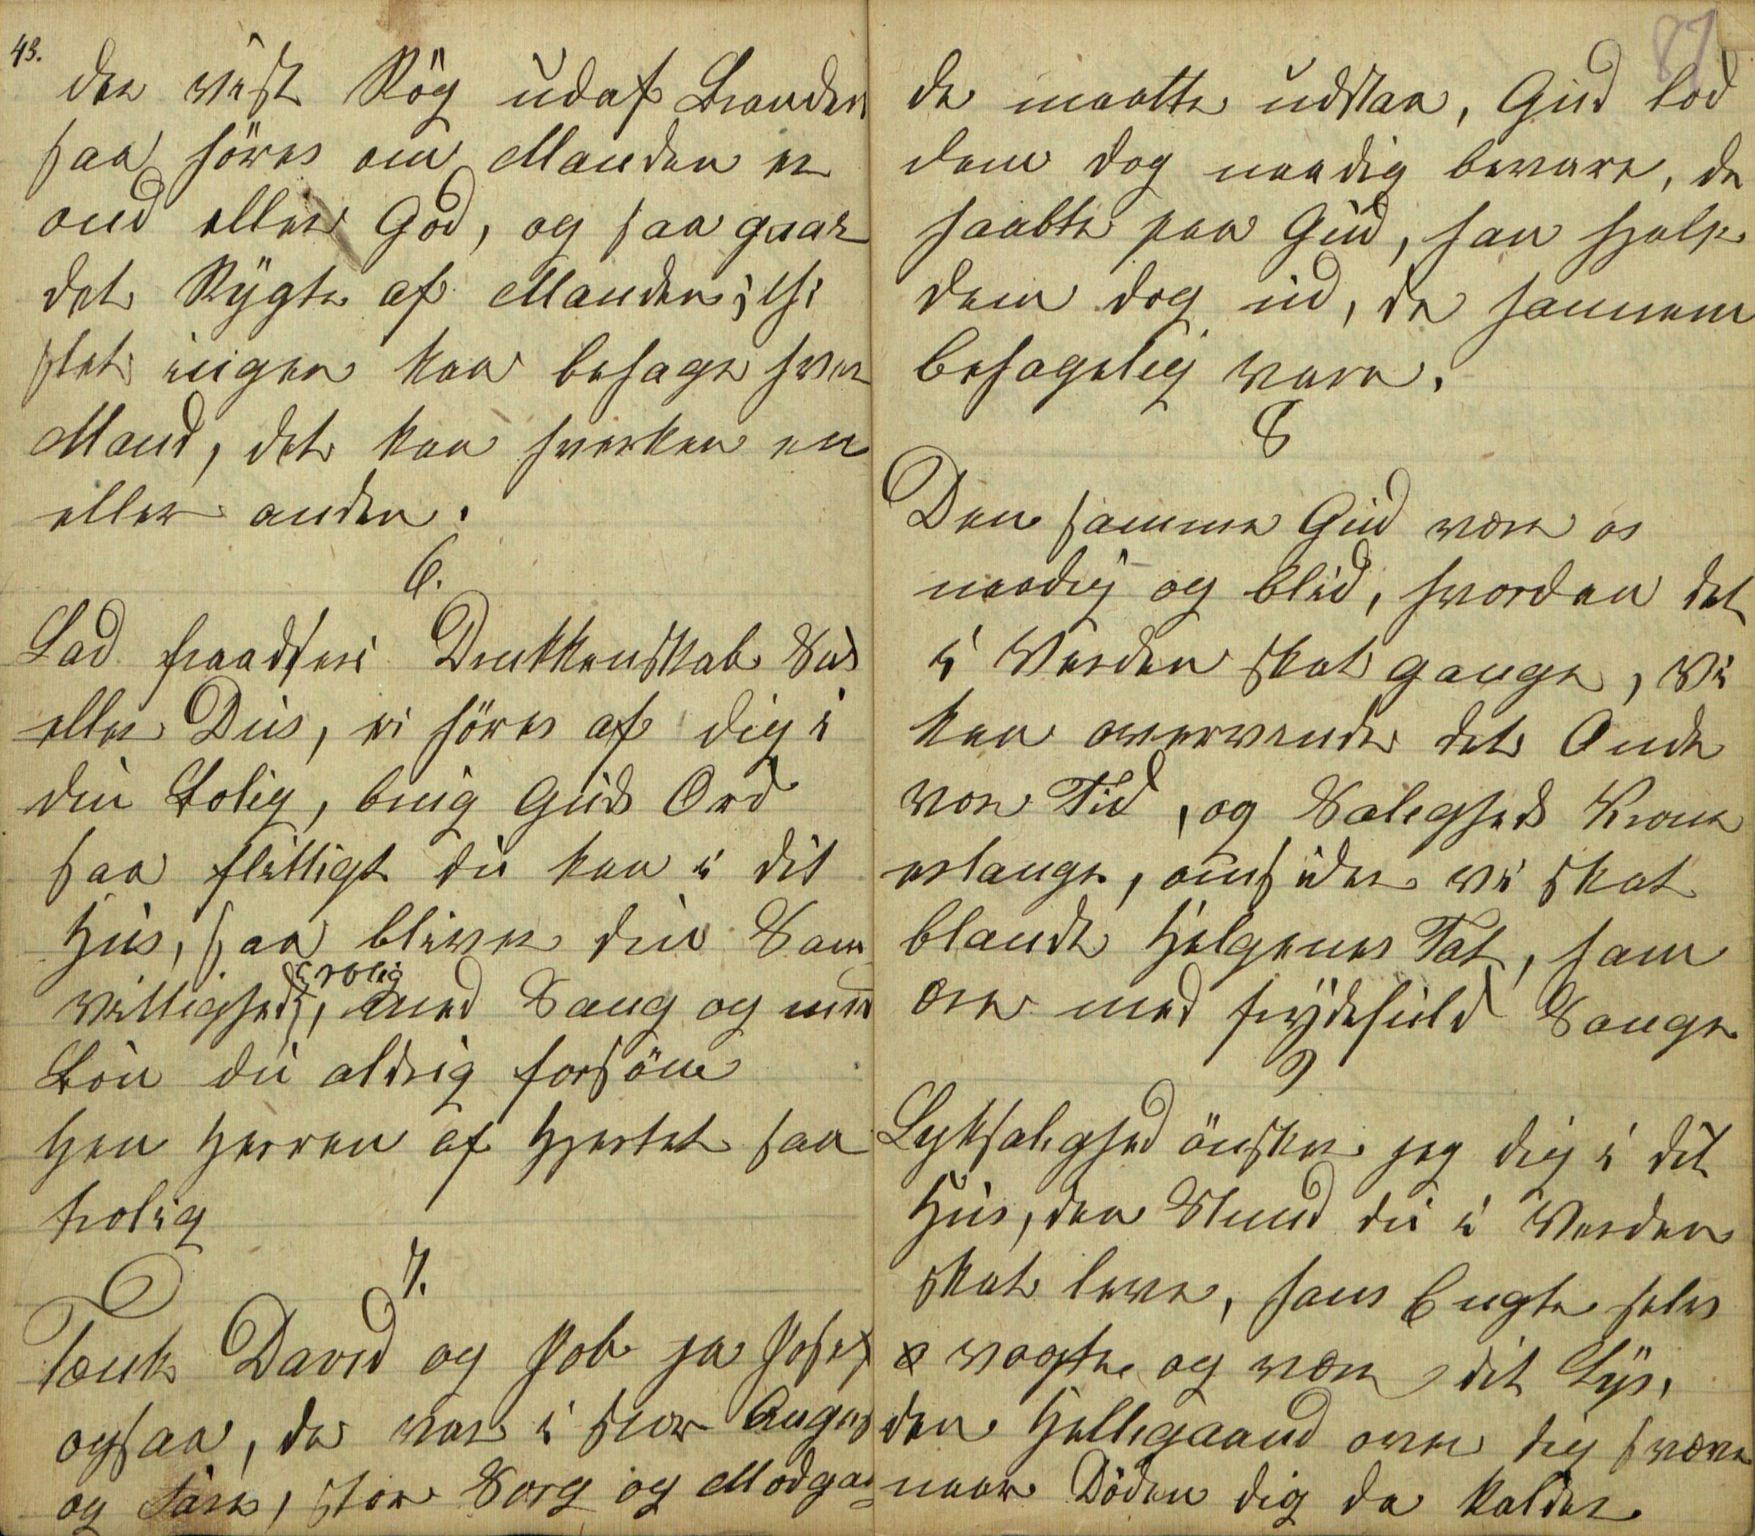 43.
der vist Røg udaf Branden
saa høres om Manden er
ond eller God, og saa gaar
det Rygte af Manden; thi
slet ingen kan behage hver
Mand, det kan hverken en
eller anden.
6.
Lad fraadseri Drukkenskab Sus
eller Duus, ei høres af dig i
din Bolig, brug Guds Ord
saa flittigt du kan i dit
Huus, saa bliver din Sam
vittighed rolig, med Sang og
Bøn du aldrig forsøm
Hen Herren af Hjertet saa
trolig
7.
Tænk David og Job ja Josef
ogsaa, de var i stor Angest
og Fare, stor Sorg og Modgang
87
de maatte udstaa, Gud lod
dem dog naadig bevare, de
haabte paa Gud, han hjalp
dem dog ud, de hannem
behagelig vare.
8
Den samme Gud være os
naadig og blid, hvordan det
i Verden skal gange, Vi
kan overvinde det Onde
vor Tid, og Saligheds Krone
erlange, omsider vi skal
blandt Helgenes Tal, ham
ære med frydefuld Sange
9
Lyksalighed ønsker jeg dig i dit
Huus, den Stund du i Verden
skal leve, hans Engle selv
vogte og være dit Lys,
den Helligaand over dig svæve
naar Døden dig da kalder